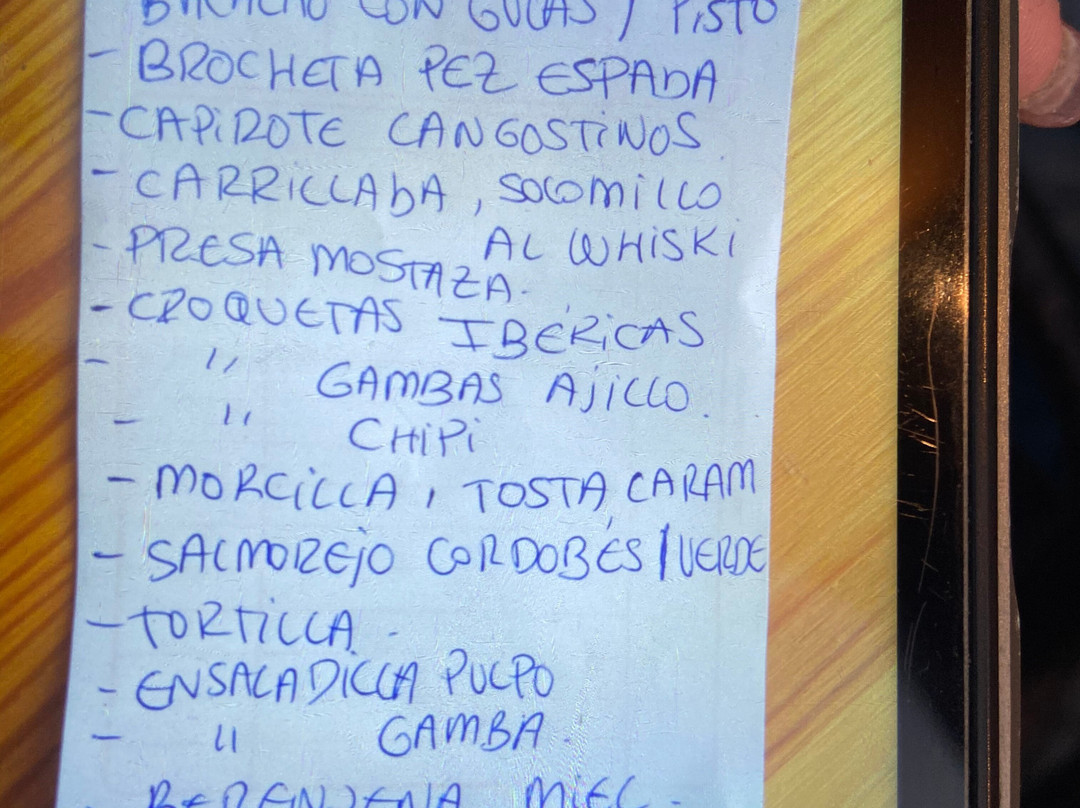 BACALAO CON GULAS / PISTO
- BROCHETA PEZ ESPADA
- CAPIROTE LANGOSTINOS.
- CARRILLADA, SOLOMILLO
AL WHISKI
- PRESA MOSTAZA.
- CROQUETAS IBÉRICAS
- " GAMBAS AJILLO.
- " CHIPI
- MORCILLA, TOSTA, CARAM
- SALMOREJO CORDOBÉS / VERDE
- TORTILLA.
- ENSALADILLA PULPO
- " GAMBA.
- BERENJENA MIEL.